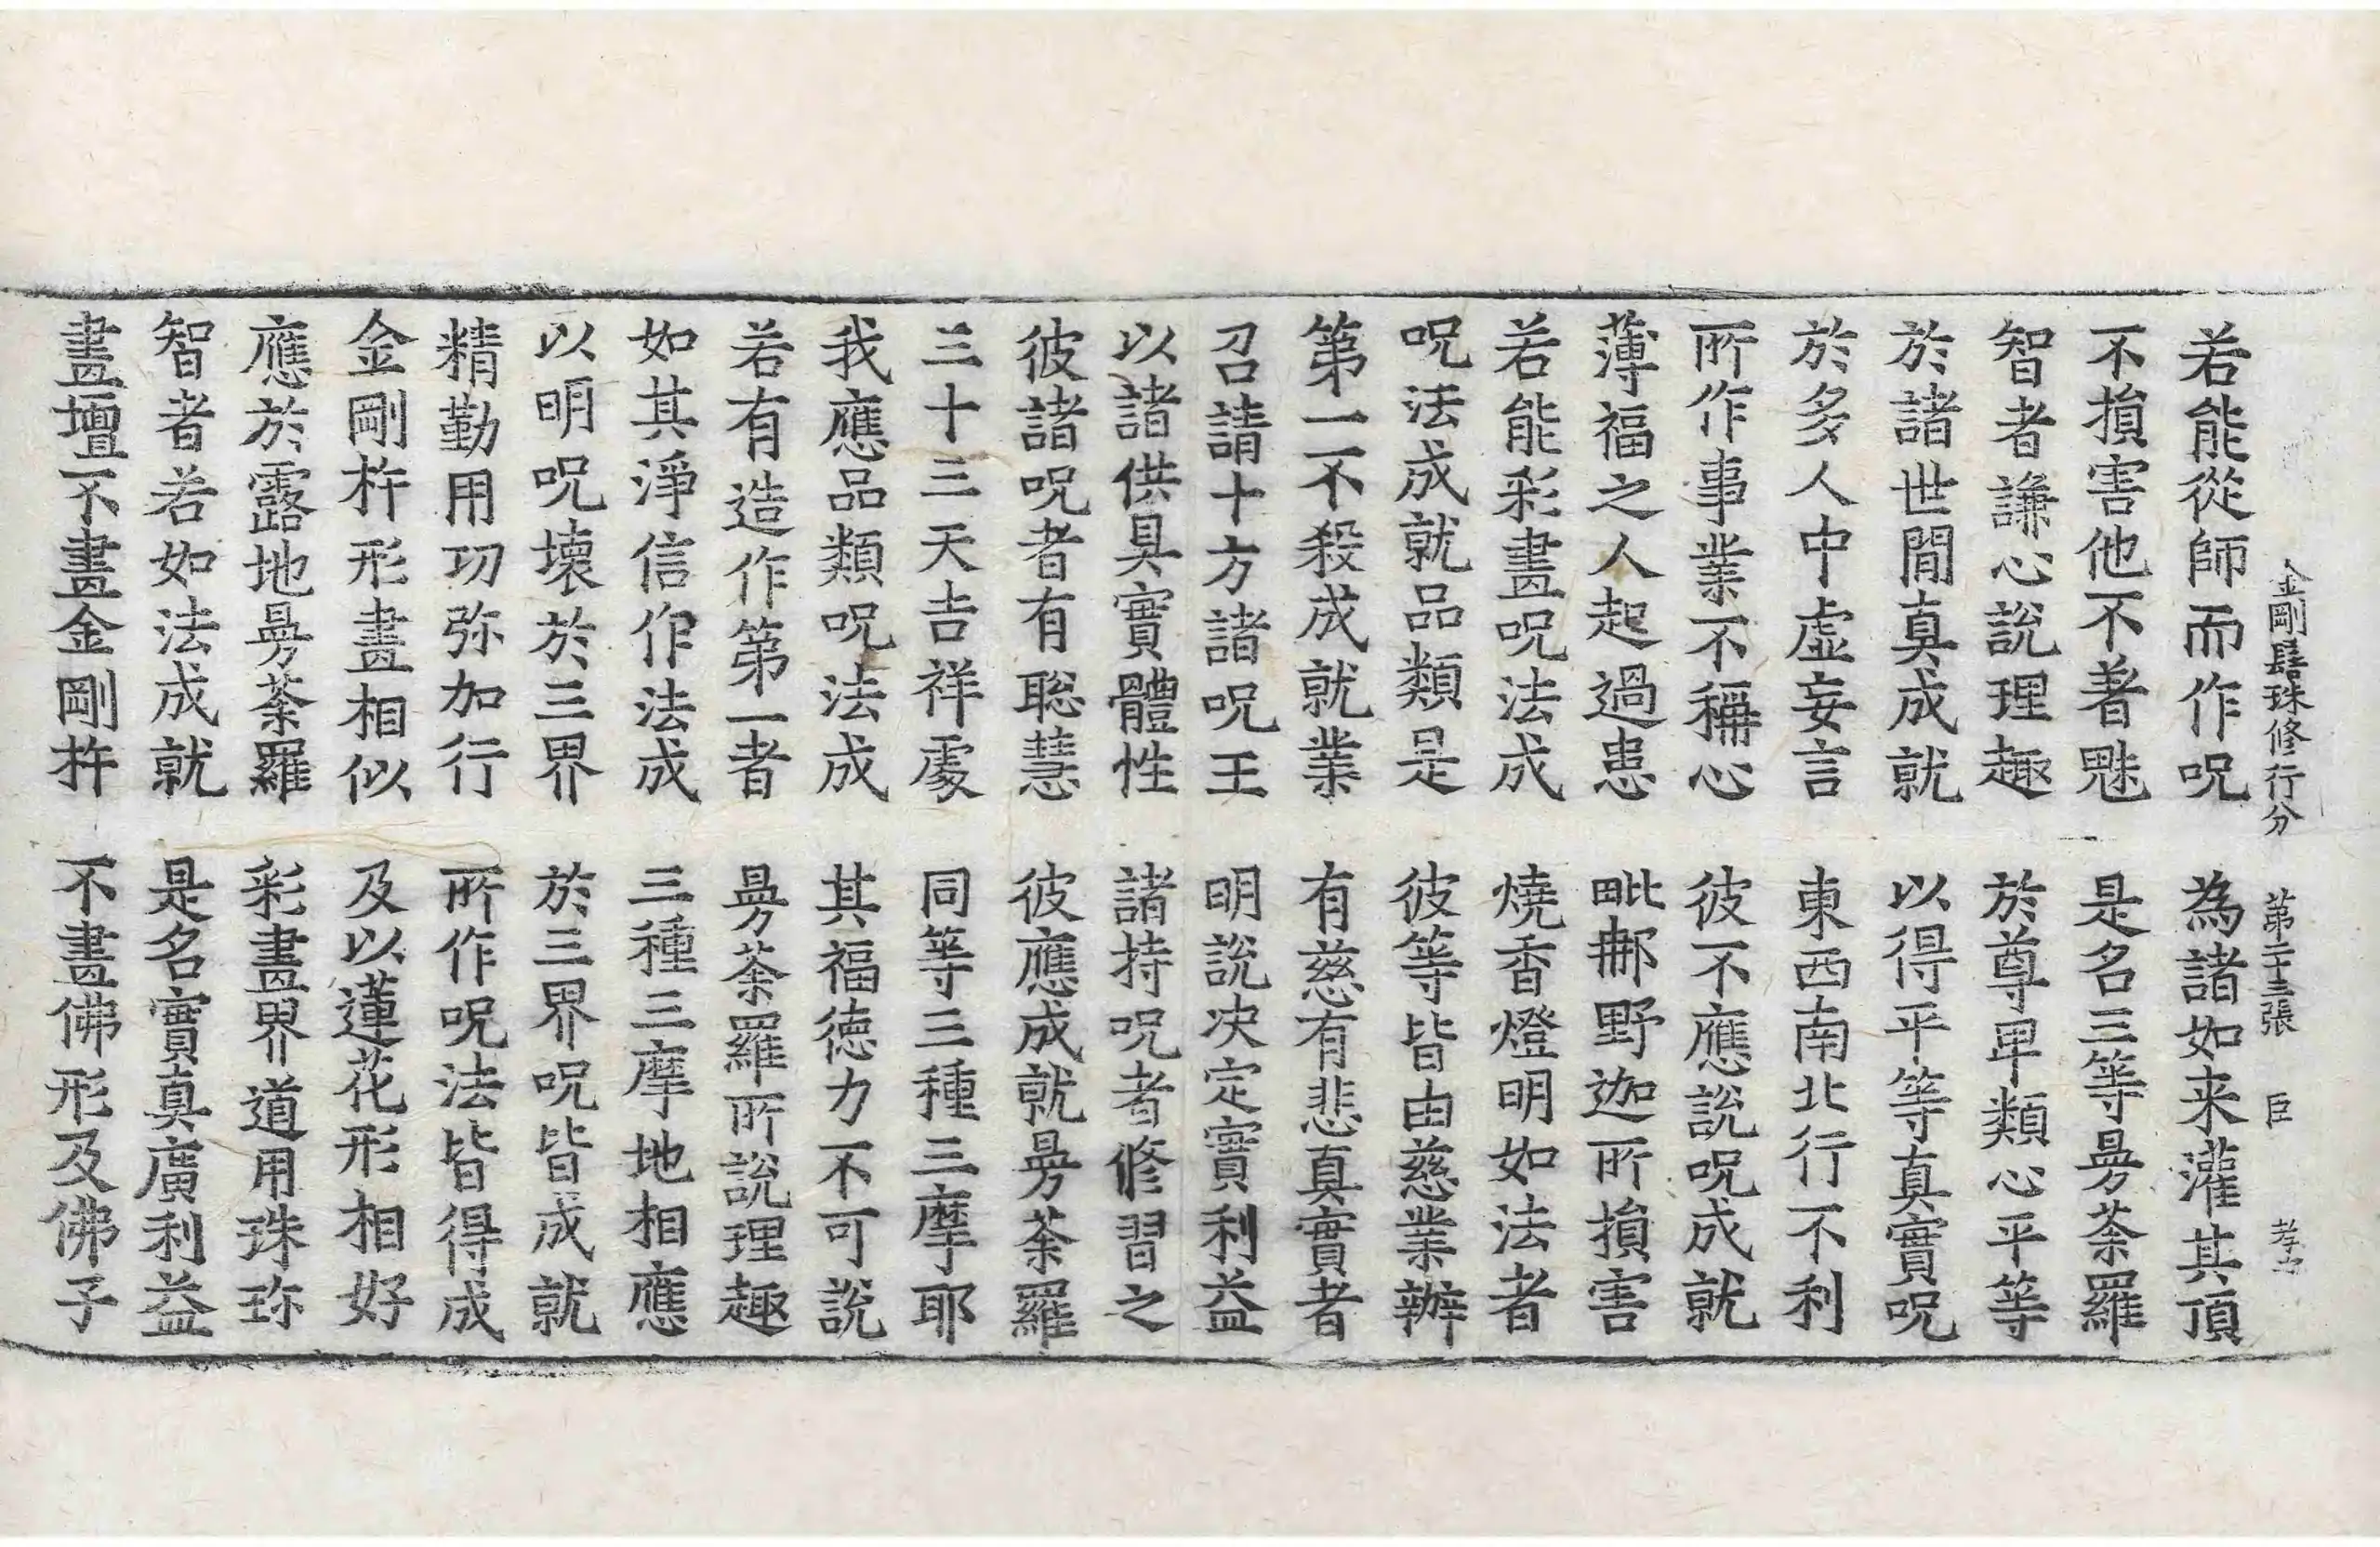 金剛髻珠修行分 第二十三張 臣 孝
若能從師而作呪 為諸如来灌其頂
不損害他不著魅 是名三等曼荼羅
智者謙心說理趣 於尊卑類心平等
於諸世間真成就 以得平等真實呪
於多人中虛妄言 東西南北行不利
所作事業不稱心 彼不應說呪成就
薄福之人起過患 毗䣕野迦所損害
若能彩畫呪法成 燒香燈明如法者
呪法成就品類是 彼等皆由慈業辦
第一不殺成就業 有慈有悲真實者
召請十方諸呪王 明說决定實利益
以諸供具實體性 諸持呪者修習之
彼諸呪者有聡慧 彼應成就曼荼羅
三十三天吉祥處 同等三種三摩耶
我應品類呪法成 其福德力不可說
若有造作第一者 曼荼羅所說理趣
如其淨信作法成 三種三摩地相應
以明呪壞於三界 於三界呪皆成就
精勤用功弥加行 所作呪法皆得成
金剛杵形畫相似 及以蓮花形相好
應於露地曼荼羅 彩畫界道用珠珎
智者若如法成就 是名實真廣利益
畫壇不畫金剛杵 不畫佛形及佛子